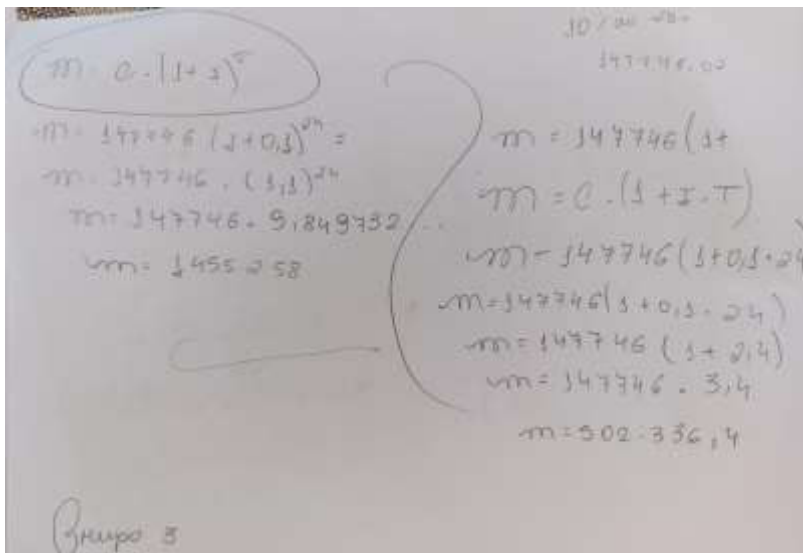 m = C . (1+i)^T
m = 147746 (1+0,1)^24 =
m = 147746 . (1,1)^24
m = 147746 . 9,849732...
m = 1455258
147746,00
m = 147746(1+
m = C . (1+I.T)
m = 147746(1+0,1.24)
m = 147746(1+0,1.24)
m = 147746 (1+2,4)
m = 147746 . 3,4
m = 502.336,4
3